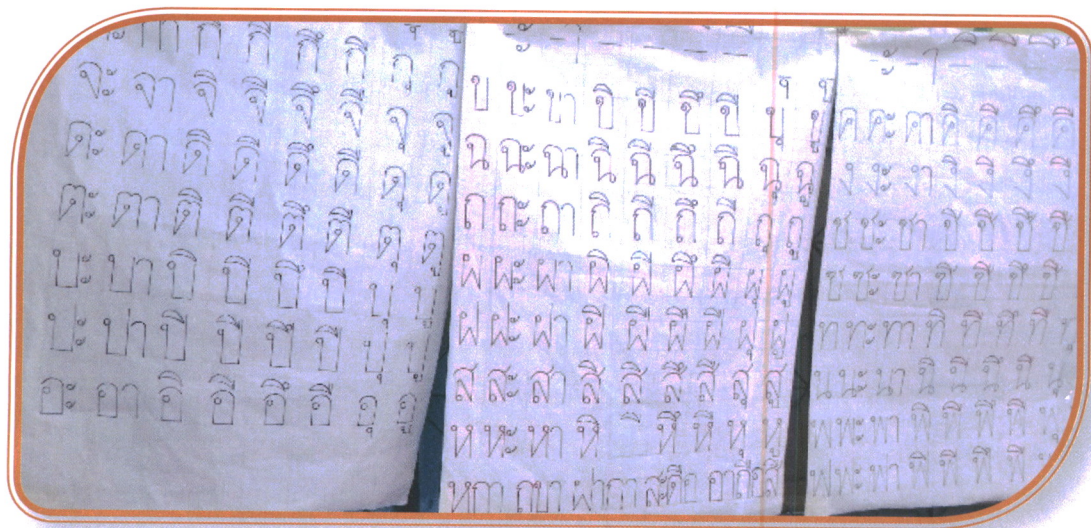 จะ จา จิ จี จึ จื จุ จู
ดะ ดา ดิ ดี ดึ ดื ดุ ดู
ตะ ตา ติ ตี ตึ ตื ตุ ตู
บะ บา บิ บี บึ บื บุ บู
ปะ ปา ปิ ปี ปึ ปื ปุ ปู
อะ อา อิ อี อึ อื อุ อู
ข ขะ ขา ขิ ขี ขึ ขื ขุ ขู
ฉ ฉะ ฉา ฉิ ฉี ฉึ ฉื ฉุ ฉู
ถ ถะ ถา ถิ ถี ถึ ถื ถุ ถู
ผ ผะ ผา ผิ ผี ผึ ผื ผุ ผู
ฝ ฝะ ฝา ฝิ ฝี ฝึ ฝื ฝุ ฝู
ส สะ สา สิ สี สึ สื สุ สู
ห หะ หา หิ หึ หื หุ หู
ค คะ คา คิ คี คึ คื
ง งะ งา งิ งี งึ งื
ช ชะ ชา ชิ ชี ชึ ชื
ซ ซะ ซา ซิ ซี ซึ ซื
ท ทะ ทา ทิ ที ทึ ทื
น นะ นา นิ นี นึ นื
พ พะ พา พิ พี พึ พื
ฟ ฟะ ฟา ฟิ ฟี ฟึ ฟื